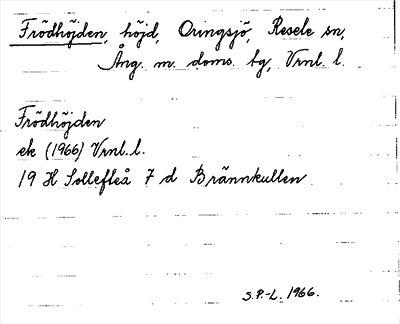 Frödhöjden, höjd, Oringsjö, Resele sn,
Ång. m. doms. bg, Vrnl. l.
Frödhöjden
ek (1966) Vrnl. l.
19 H Sollefteå 7 d Brännkullen
S.P.-L. 1966.